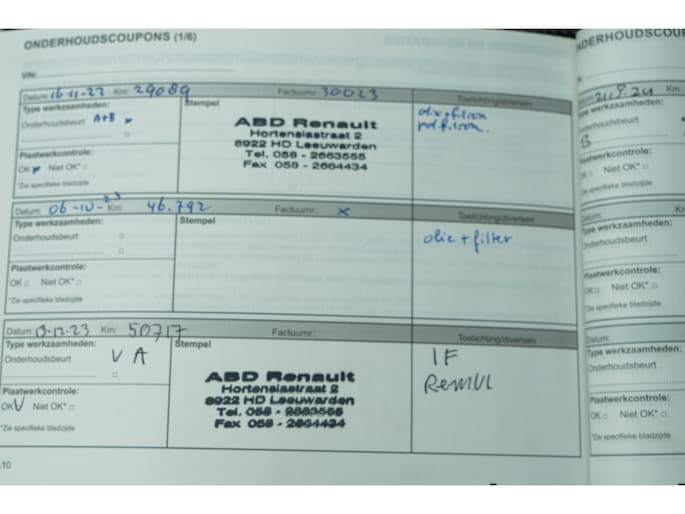 ONDERHOUDSCOUPONS (1/6)
VIN:
Datum: 16-11-22 Km: 29089 Factuurnr: 30023
Type werkzaamheden:
Onderhoudsbeurt A+B
Plaatwerkcontrole:
OK Niet OK*
*Zie specifieke bladzijde
Stempel
ABD Renault
Hortensiastraat 2
8922 HD Leeuwarden
Tel. 058 - 2663555
Fax 058 - 2664434
Toelichting/diversen
olie+filter
Datum: 06-10-23 Km: 46.792 Factuurnr.: x
Type werkzaamheden:
Onderhoudsbeurt
Plaatwerkcontrole:
OK Niet OK*
*Zie specifieke bladzijde
Stempel
Toelichting/diversen
olie+filter
Datum: 13-12-23 Km: 50717 Factuurnr.:
Type werkzaamheden:
Onderhoudsbeurt V A
Plaatwerkcontrole:
OK V Niet OK*
*Zie specifieke bladzijde
Stempel
ABD Renault
Hortensiastraat 2
8922 HD Leeuwarden
Tel. 058 - 2663555
Fax 058 - 2664434
Toelichting/diversen
IF
RemVL
10
NDERHOUDSCOU
Datum: 21.8.24 Km:
Type werkzaamheden:
Onderhoudsbeurt
B
Plaatwerkcontrole:
OK Niet OK*
*Zie specifieke bladzijde
Datum: K
Type werkzaamheden:
Onderhoudsbeurt
Plaatwerkcontrole:
OK Niet OK*
*Zie specifieke bladzijde
Datum:
Type werkzaamheden:
Onderhoudsbeurt
Plaatwerkcontrole:
OK Niet OK*
*Zie specifieke bladzijde